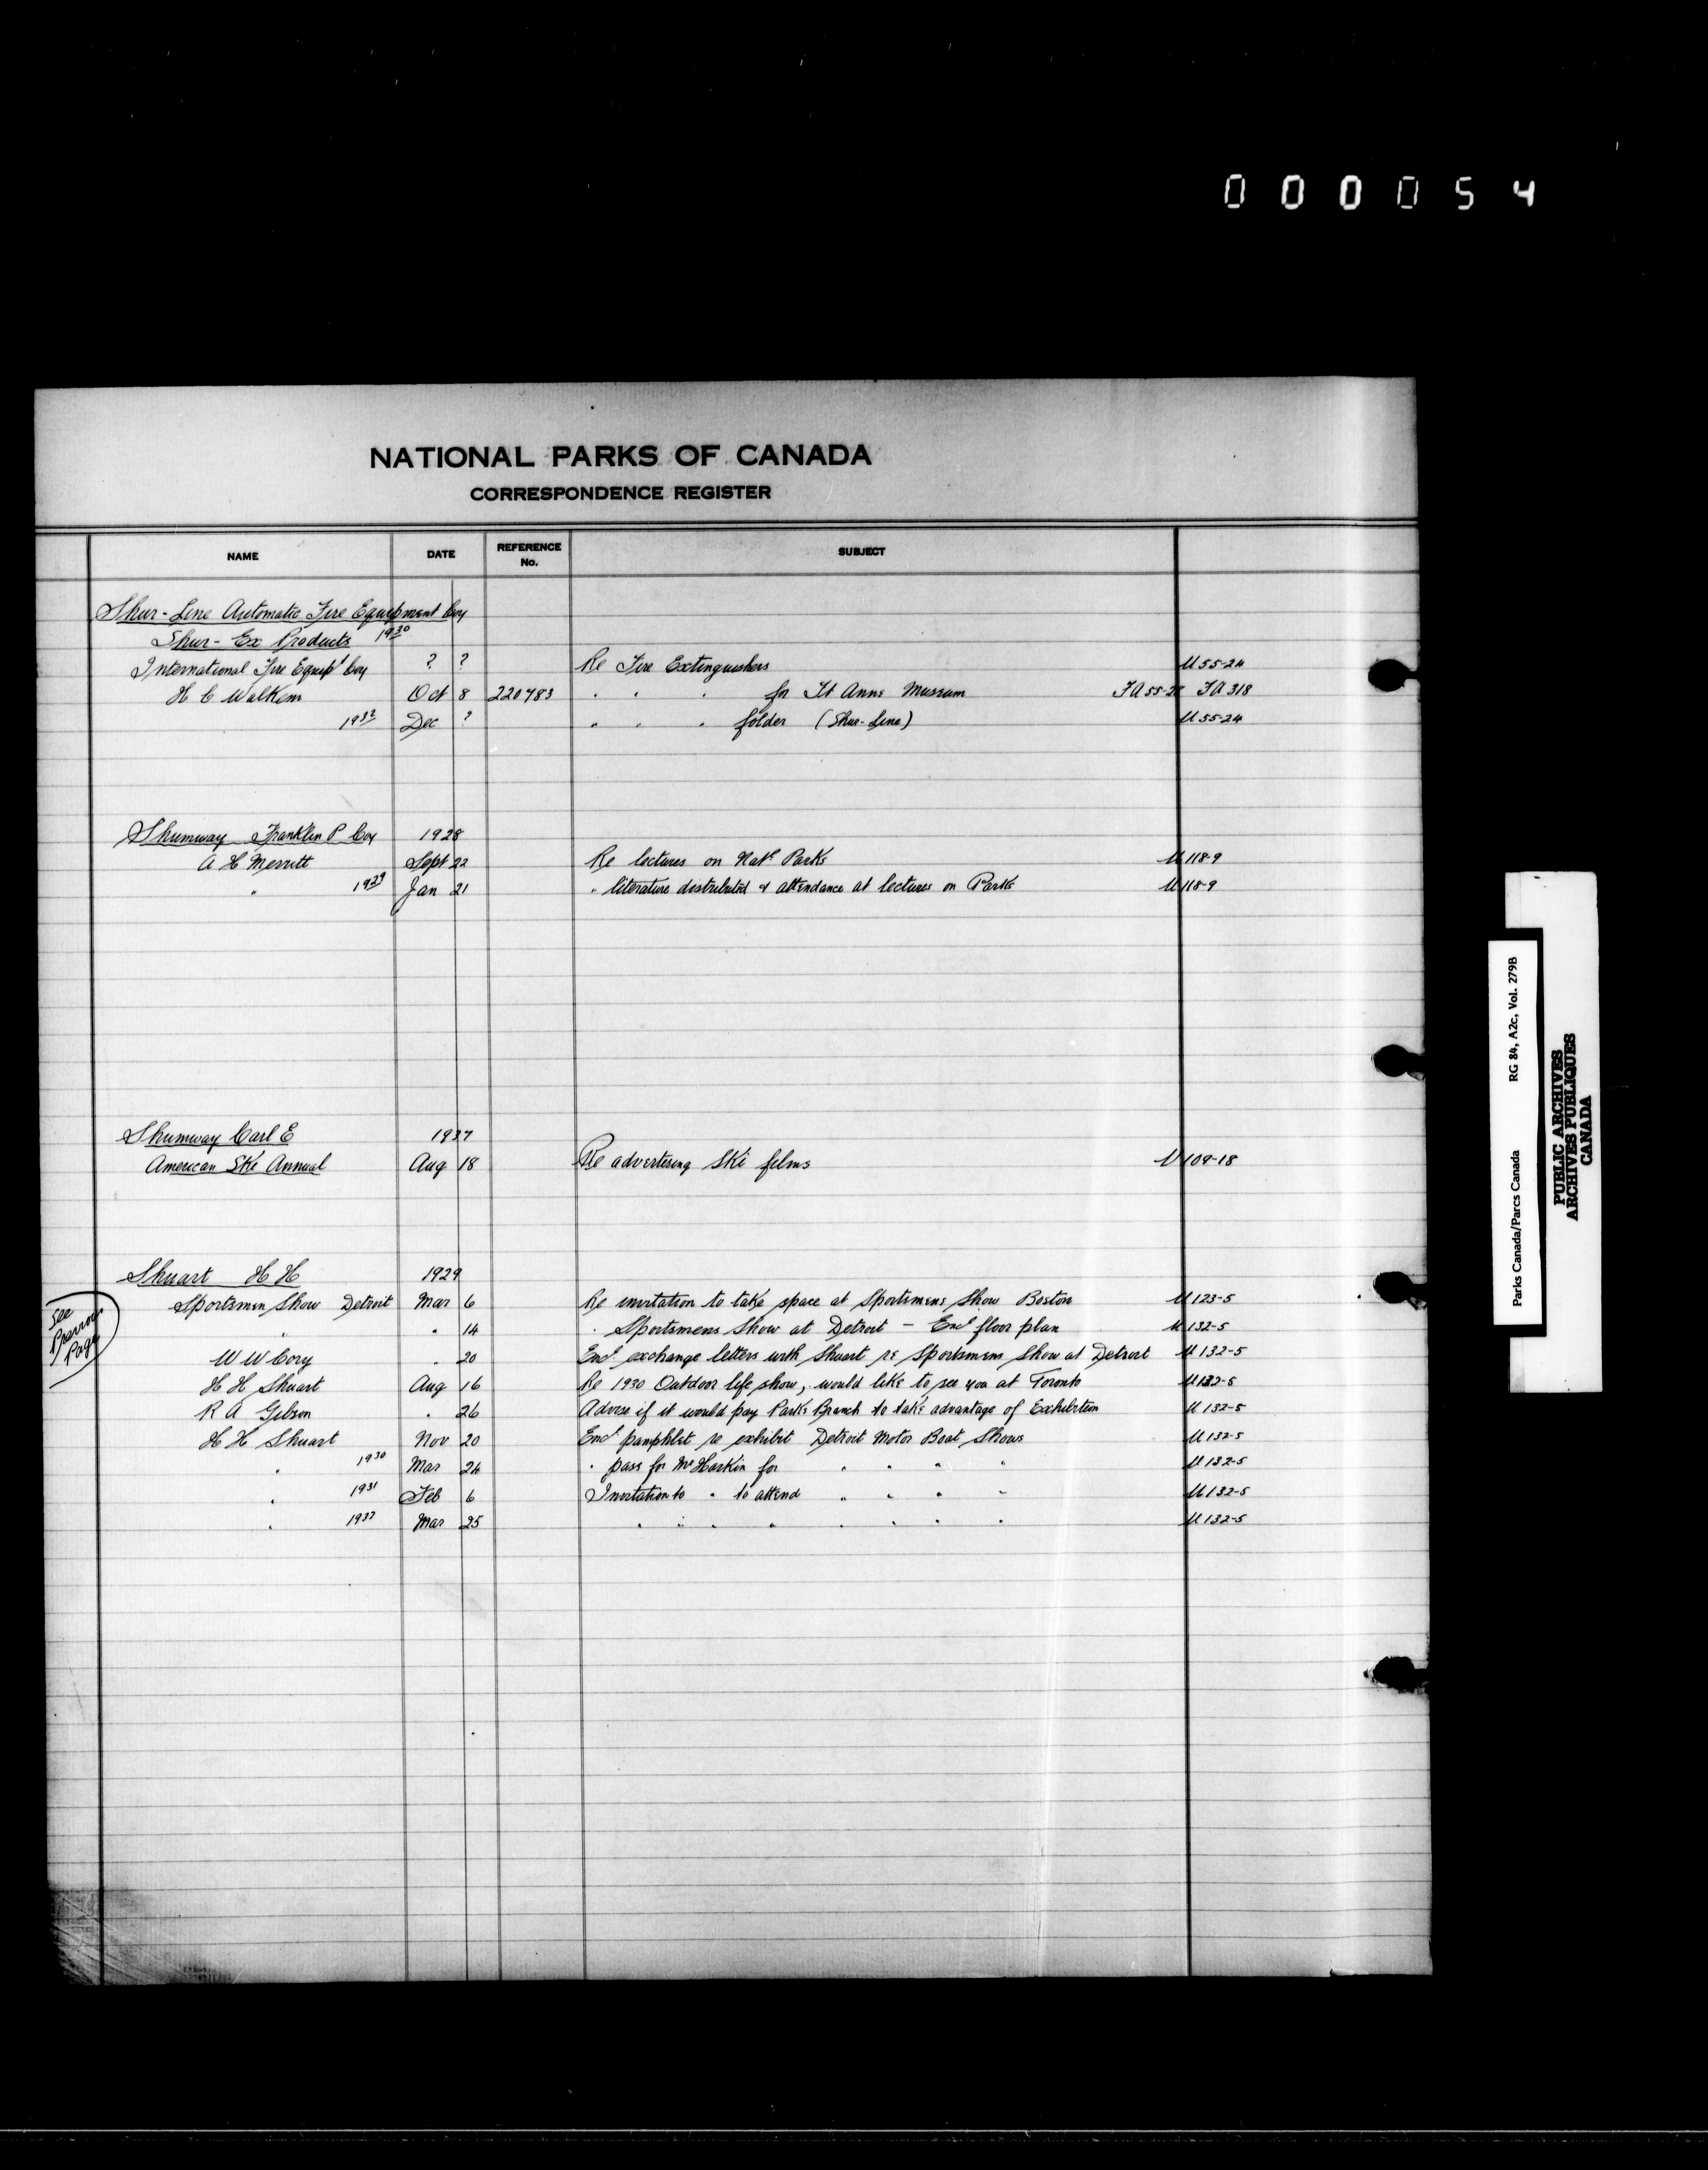 000054
NATIONAL PARKS OF CANADA
CORRESPONDENCE REGISTER
NAME DATE REFERENCE No. SUBJECT
Shur-Line Automatic Fire Equipment Coy
Shur-Ex Products 1930
International Fire Equipt Coy ? ? Re Fire Extinguishers U 55-24
H C Walkem Oct 8 220783 " " " for Ft Anne Museum FA 55-2 FA 318
1932 Dec ? " " " folder (Shur-Line) U 55-24
Shumway Franklin P Coy 1928
A H Merritt Sept 22 Re lectures on Natl Parks U 118-9
" 1929 Jan 21 " literature distributed & attendance at lectures on Parks U 118-9
Shumway Carl E 1937
American Ski Annual Aug 18 Re advertising Ski films U 109-18
Shuart H H 1929
See Previous Page
Sportsmen Show Detroit Mar 6 Re invitation to take space at Sportsmens Show Boston U 123-5
" " 14 " Sportsmens Show at Detroit - Encl floor plan U 132-5
W W Cory " 20 Encl exchange letters with Shuart re Sportsmens Show at Detroit U 132-5
H H Shuart Aug 16 Re 1930 Outdoor life show, would like to see you at Toronto U 132-5
R A Gibson " 26 Advise if it would pay Parks Branch to take advantage of Exhibition U 132-5
H H Shuart Nov 20 Encl pamphlet re exhibit Detroit Motor Boat Shows U 132-5
" 1930 Mar 24 " pass for Mr Harkin for " " " " U 132-5
" 1931 Feb 6 Invitation to " to attend " " " " U 132-5
" 1932 Mar 25 " " " " " " " " U 132-5
Parks Canada/Parcs Canada RG 84, A2c, Vol. 279B
PUBLIC ARCHIVES
ARCHIVES PUBLIQUES
CANADA